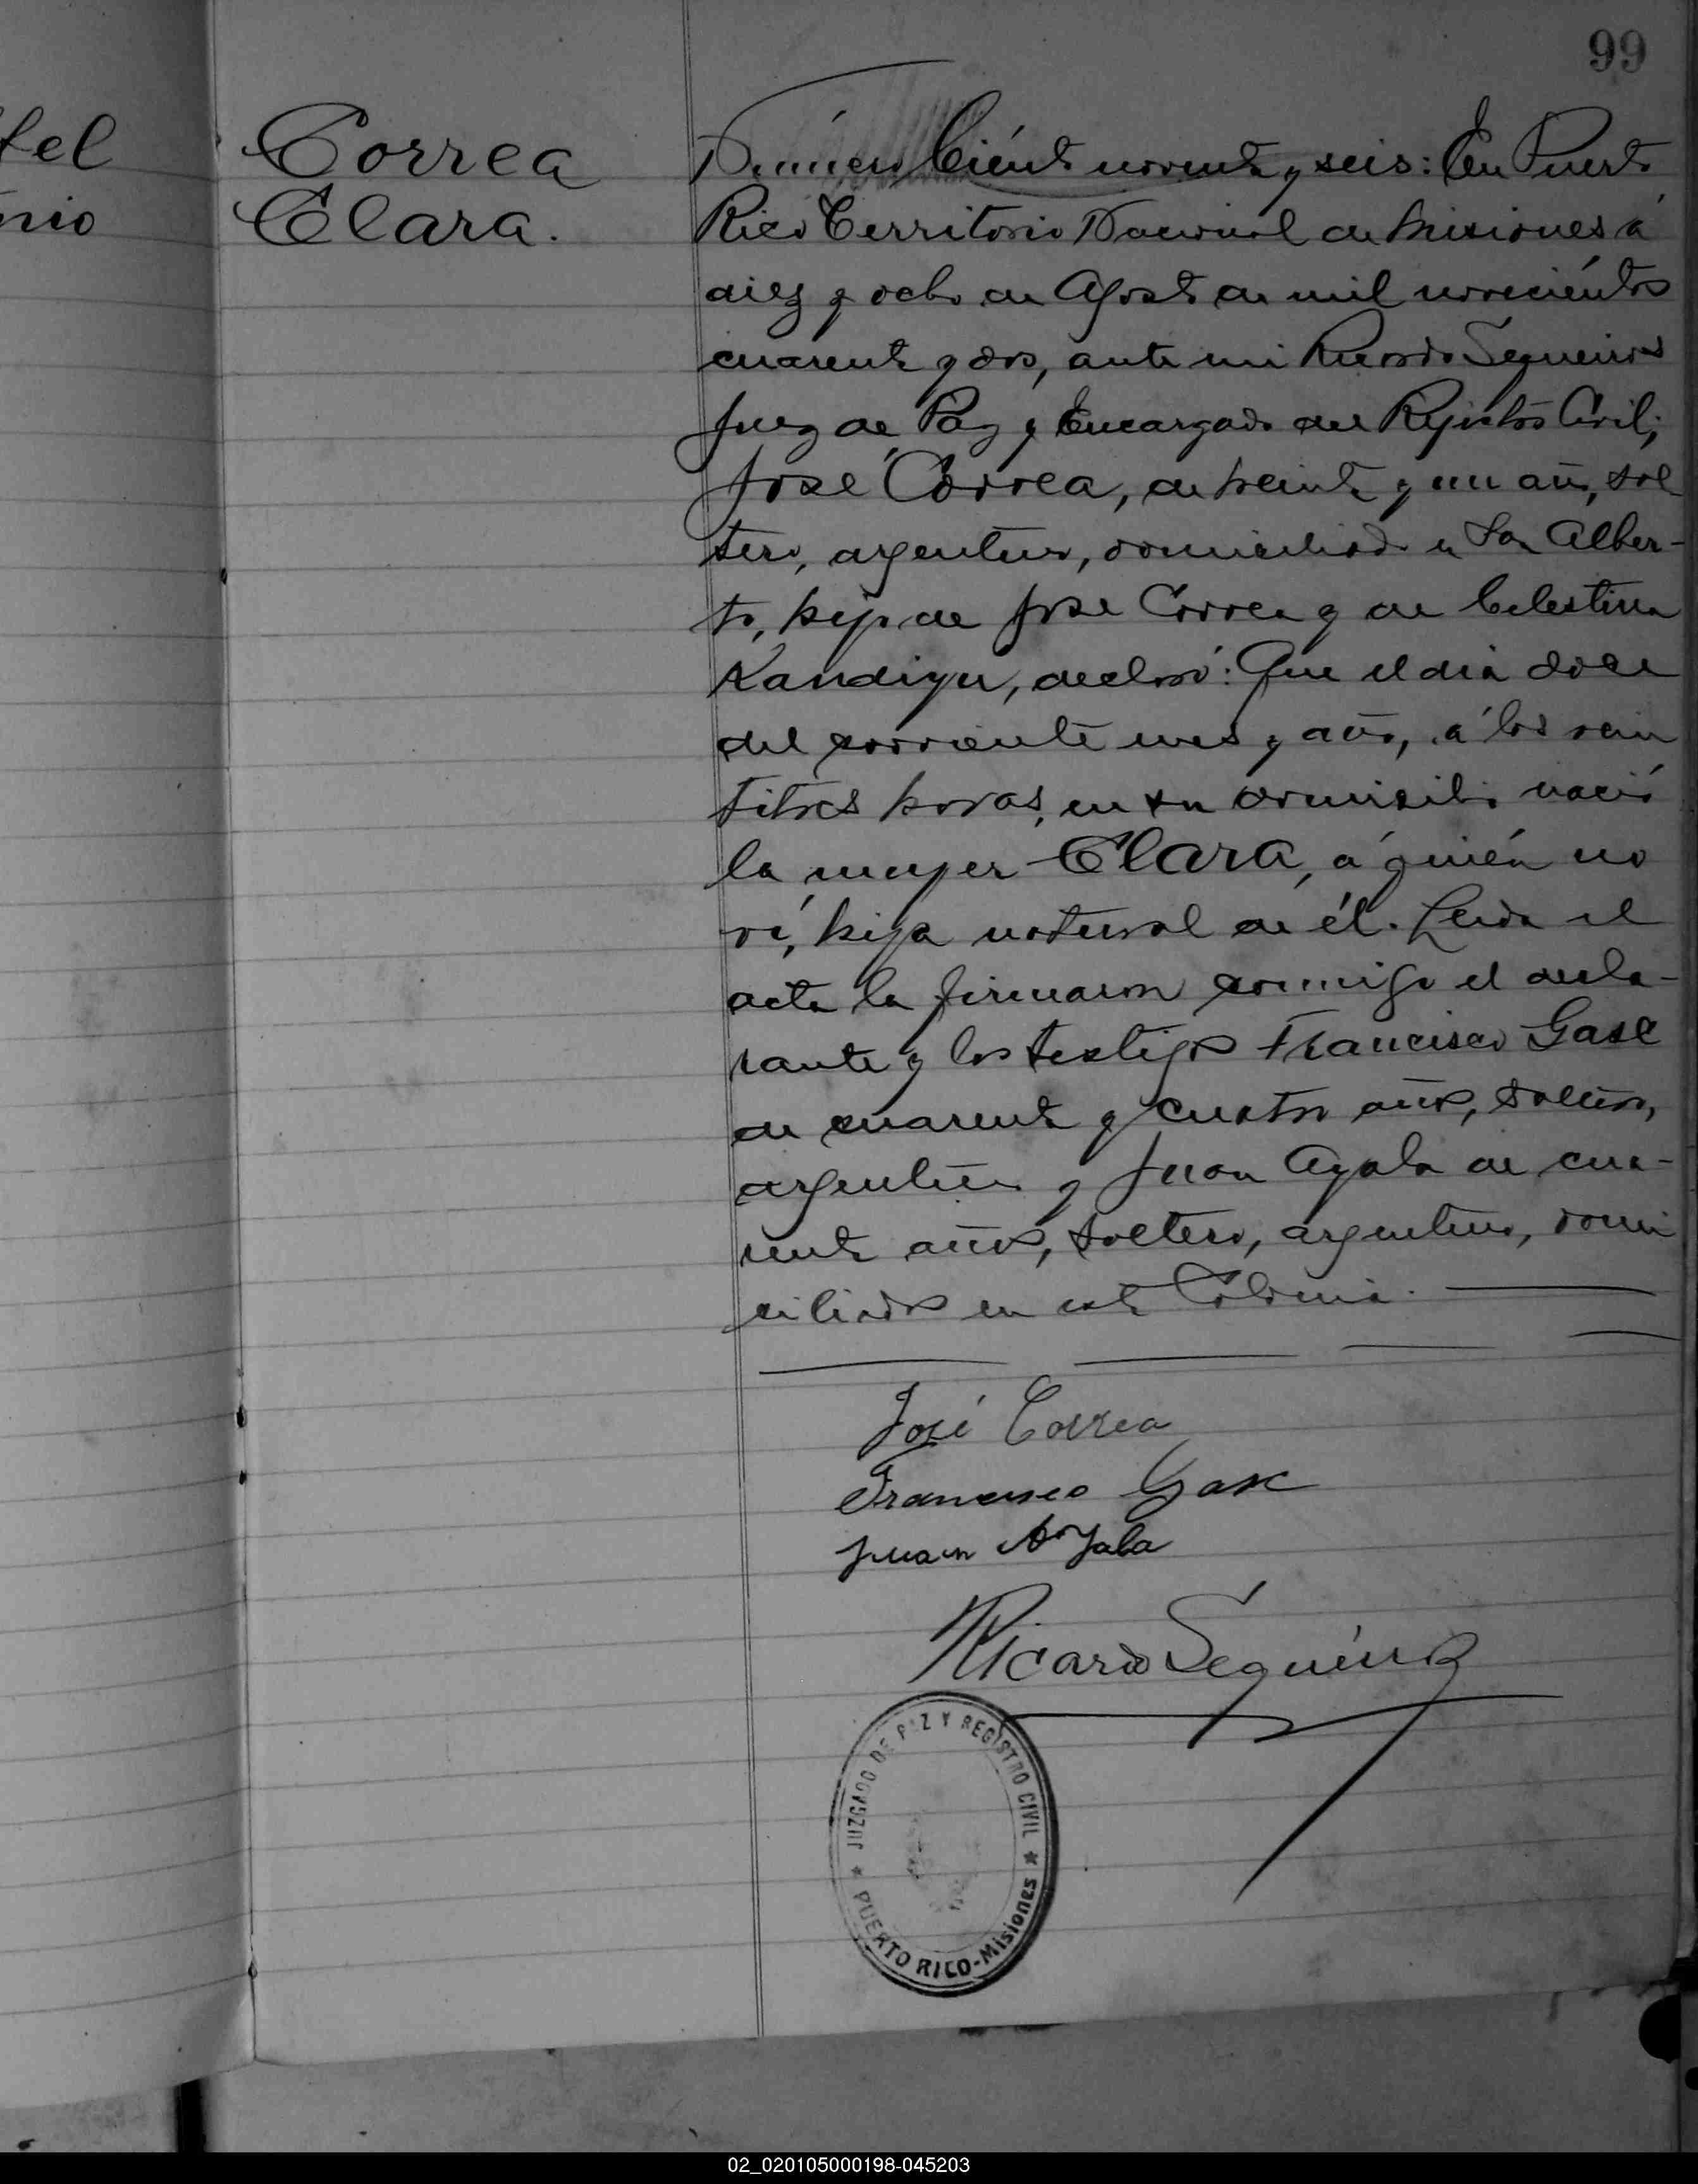 99
fel
nio
Correa
Clara.
Número Ciento noventa y seis: En Puerto
Rico Territorio Nacional de Misiones á
diez y ocho de Agosto de mil noveciéntos
cuarenta y dos, ante mi Ricardo Sequeiros
Juez de Paz y Encargado del Rejistro Civil;
José Correa, de treinta y un año, sol-
tero, argentino, domiciliado en San Alber-
to, hijo de José Correa y de Celestina
declaró: Que el dia doce
del corriente mes y año, á las vein
titres horas, en su domicilio nació
la mujer Clara, á quién no
ví, hija natural de él. Leida el
acta la firmaron conmigo el decla-
rante y los testigos Francisco Gase
de cuarenta y cuatro años, soltero,
argentino y Juan Ayala de cua-
renta años, soltero, argentino, domi
ciliados en esta Colonia.
José Correa
Francisco Gase
Juan Ayala
Ricardo Sequeiros
JUZGADO DE PAZ Y REGISTRO CIVIL
PUERTO RICO-Misiones
02_020105000198-045203